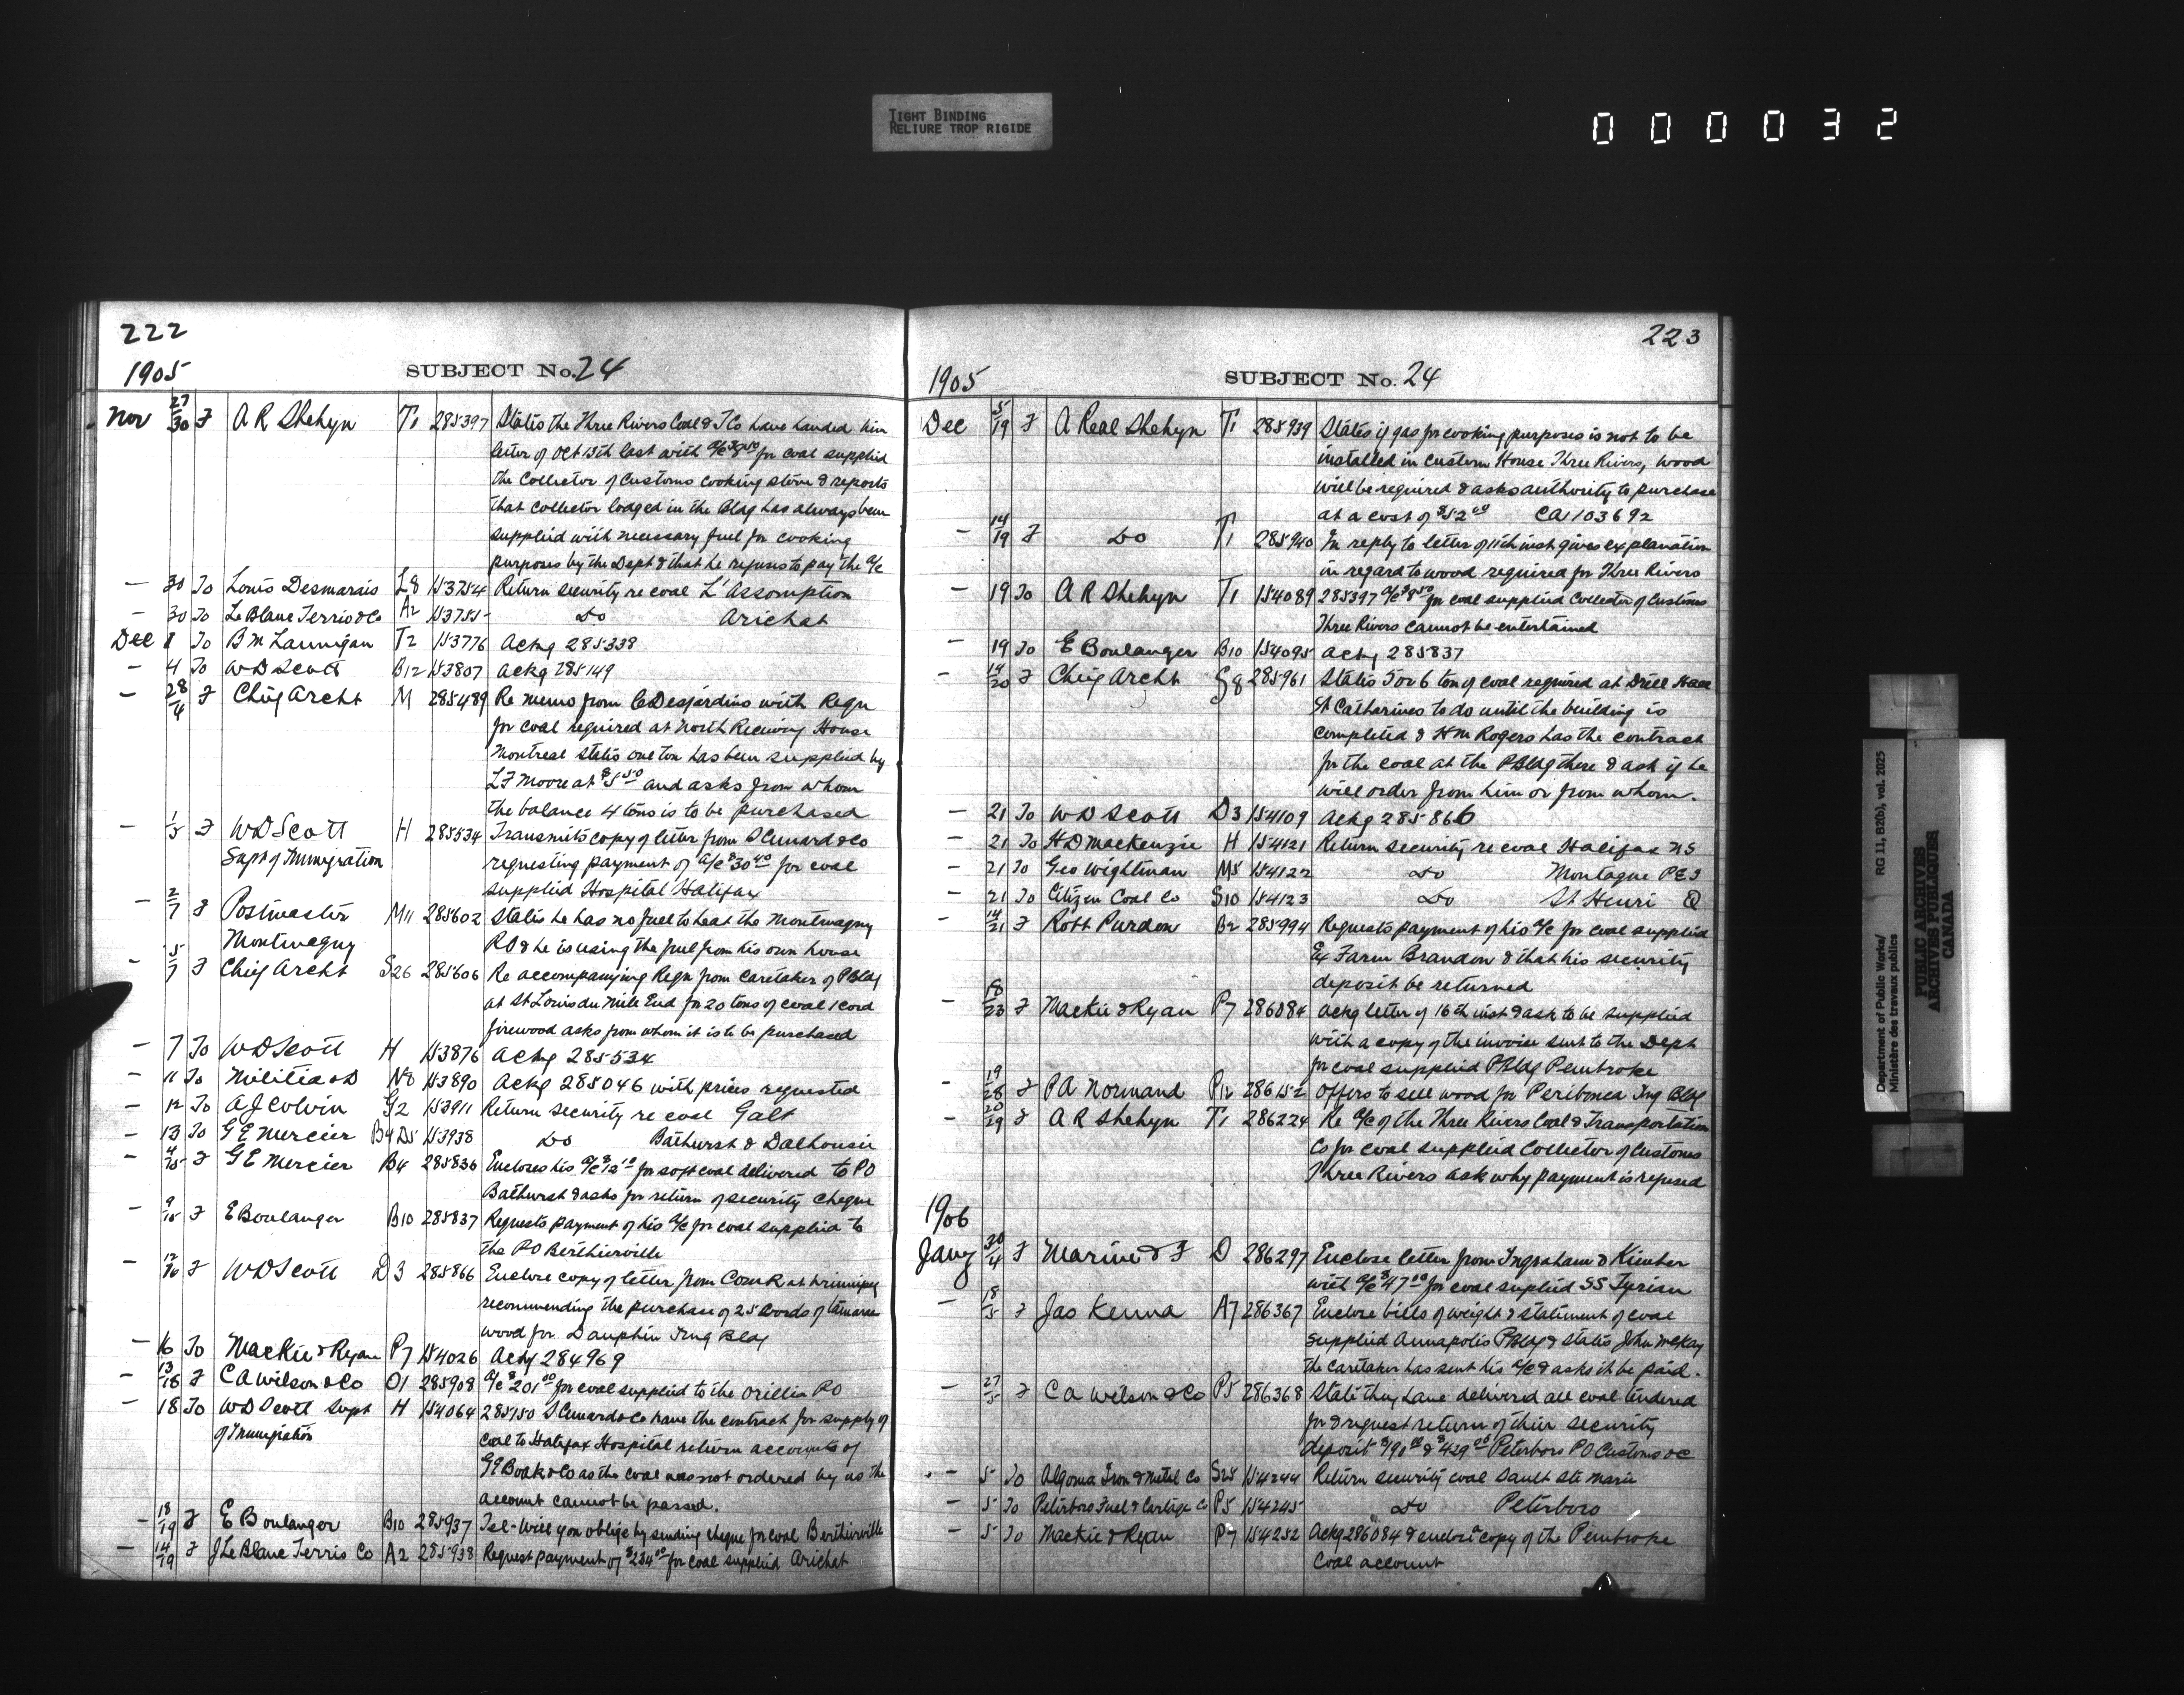 TIGHT BINDING
RELIURE TROP RIGIDE
000032
222
1905
SUBJECT No. 24
Nov 27/30 F A R Shehyn T1 285397 States the Three Rivers Coal & T Co have handed him
letter of Oct 13th last with a/c $8.50 for coal supplied
the Collector of Customs cooking stove & reports
that Collector lodged in the Bldg has always been
supplied with necessary fuel for cooking
purposes by the Dept & that he refuses to pay the a/c
— 30 To Louis Desmarais L8 153754 Return security re coal L'Assomption
— 30 To LeBlanc Terrio & Co A2 153755 Do Arichat
Dec 1 To B M Lannigan T2 153776 Ackg 285338
— 4 To W D Scott B12 153807 Ackg 285149
— 28/4 F Chief Archt M 285489 Re memo from C Desjardins with Reqn
for coal required at North Receiving House
Montreal states one ton has been supplied by
L F Moore at $5.50 and asks from whom
the balance 4 tons is to be purchased
— 1/5 F W D Scott H 285534 Transmits copy of letter from S Cunard & Co
Supt of Immigration requesting payment of a/c $30.40 for coal
supplied Hospital Halifax
— 2/7 F Postmaster M11 285602 States he has no fuel to heat the Montmagny
Montmagny P.O & he is using the fuel from his own house
— 5/7 F Chief Archt S26 285606 Re accompanying Reqn from Caretaker of P Bldg
at St Louis du Mile End for 20 tons of coal 1 cord
firewood asks from whom it is to be purchased
— 7 To W D Scott H 153876 Ackg 285534
— 11 To Militia & D N8 153890 Ackg 285046 with prices requested
— 12 To A J Colvin G2 153911 Return security re coal Galt
— 13 To G E Mercier B4 D5 153938 Do Bathurst & Dalhousie
— 4/15 F G E Mercier B4 285836 Encloses his a/c $12.10 for soft coal delivered to PO
Bathurst & asks for return of security cheque
— 9/15 F E Boulanger B10 285837 Requests payment of his a/c for coal supplied to
the PO Berthierville
— 12/16 F W D Scott D3 285866 Enclose copy of letter from Comr at Winnipeg
recommending the purchase of 25 cords of tamarac
wood for Dauphin Img Bldg
— 16 To Mackie & Ryan P7 154026 Ackg 284969
— 13/18 F C A Wilson & Co O1 285908 a/c $201.00 for coal supplied to the Orillia PO
— 18 To W D Scott Supt H 154064 285150 S Cunard & Co have the contract for supply of
of Immigration coal to Halifax Hospital return accounts of
G E Boak & Co as the coal was not ordered by us the
account cannot be passed.
— 18/19 F E Boulanger B10 285937 Tel- Will you oblige by sending cheque for coal Berthierville
— 14/19 F J LeBlanc Terris Co A2 285938 Request payment of $234.00 for coal supplied Arichat
223
1905
SUBJECT No. 24
Dec 5/19 F A Real Shehyn T1 285939 States if gas for cooking purposes is not to be
installed in Custom House Three Rivers, wood
will be required & asks authority to purchase
at a cost of $52.00 CA 103692
— 14/19 F Do T1 285940 In reply to letter of 11th inst gives explanation
in regard to wood required for Three Rivers
— 19 To A R Shehyn T1 154089 285397 a/c $8.50 for coal supplied Collector of Customs
Three Rivers cannot be entertained
— 19 To E Boulanger B10 154095 Ackg 285837
— 14/20 F Chief Archt S8 285961 States 5 or 6 ton of coal required at Drill Hall
St Catharines to do until the building is
completed & H M Rogers has the contract
for the coal at the P Bldg there & ask if he
will order from him or from whom.
— 21 To W D Scott D3 154109 Ackg 285866
— 21 To H D Mackenzie H 154121 Return security re coal Halifax N S
— 21 To Geo Wightman M5 154122 Do Montague P E I
— 21 To Citizen Coal Co S10 154123 Do St Henri Q
— 14/21 F Robt Purdon B2 285994 Requests payment of his a/c for coal supplied
Ex Farm Brandon & that his security
deposit be returned
— 18/23 F Mackie & Ryan P7 286084 Ackg letter of 16th inst & ask to be supplied
with a copy of the invoice sent to the Dept
for coal supplied P Bldg Pembroke
— 19/28 F P A Normand P12 286152 Offers to sell wood for Peribonca Img Bldg
— 20/29 F A R Shehyn T1 286224 Re a/c of the Three Rivers Coal & Transportation
Co for coal supplied Collector of Customs
Three Rivers ask why payment is refused
1906
Jany 30/4 F Marine & F D 286297 Enclose letter from Ingraham & Kimber
with a/c $47.00 for coal suplied SS Tyrian
— 18/5 F Jas Kenna A7 286367 Enclose bills of weight & statement of coal
supplied Annapolis P Bldg & states John McKay
the caretaker has sent his a/c & asks it be paid.
— 27/5 F C A Wilson & Co P5 286368 State they have delivered all coal tendered
for & request return of their security
deposit $190.00 & $429.00 Peterboro PO Customs &c
— 5 To Algoma Iron & Metal Co S25 154244 Return security coal Sault Ste Marie
— 5 To Peterboro Fuel & Cartage Co P5 154245 Do Peterboro
— 5 To Mackie & Ryan P7 154252 Ackg 286084 & enclose a copy of the Pembroke
Coal account
Department of Public Works/
Ministère des travaux publics
RG 11, B2(b), vol. 2025
PUBLIC ARCHIVES
ARCHIVES PUBLIQUES
CANADA